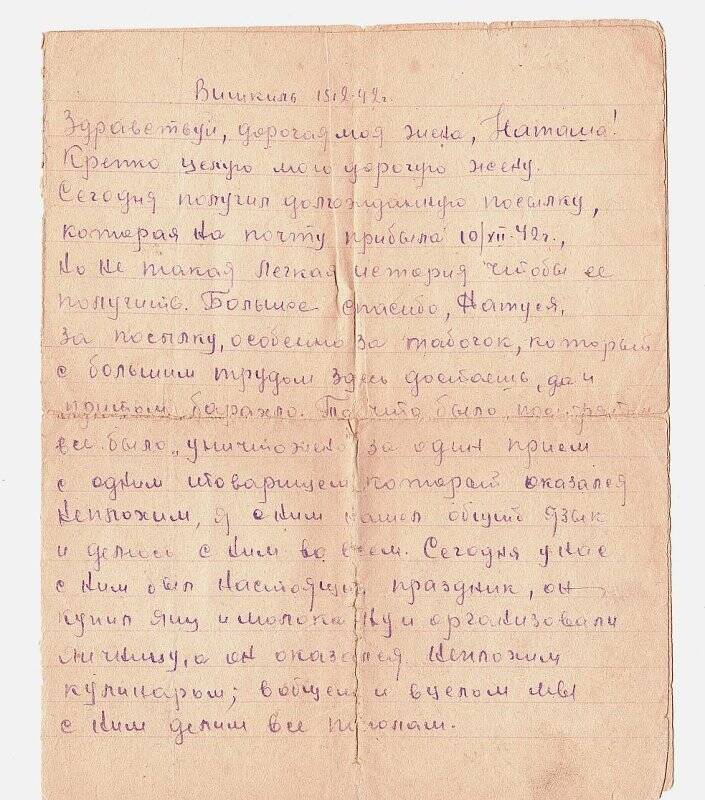 Вишкиль 15.12.42г.
Здравствуй, дорогая моя жена, Наташа!
Крепко целую мою дорогую жену.
Сегодня получил долгожданную посылку,
которая на почту прибыла 10/XII-42г.,
но не такая легкая история чтобы ее
получить. Большое спасибо, Натуся,
за посылку, особенно за табочок, который
с большим трудом здесь достаешь, да и
притом барахло. То что было
все было уничтожено за один прием
с одним товарищем который оказался
неплохим, я с ним нашел общий язык
и делюсь с ним во всем. Сегодня у нас
с ним был настоящий праздник, он
купил яиц и молока ну и организовали
яичницу, а он оказался неплохим
кулинаром; вобщем и вцелом мы
с ним делим все пополам.